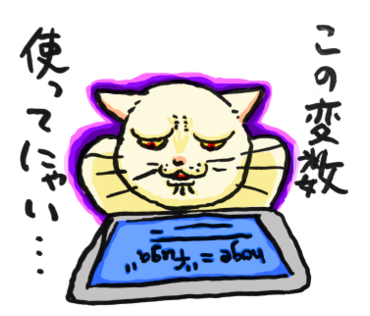 この変数
使ってにゃい…
hoge = "fuga"